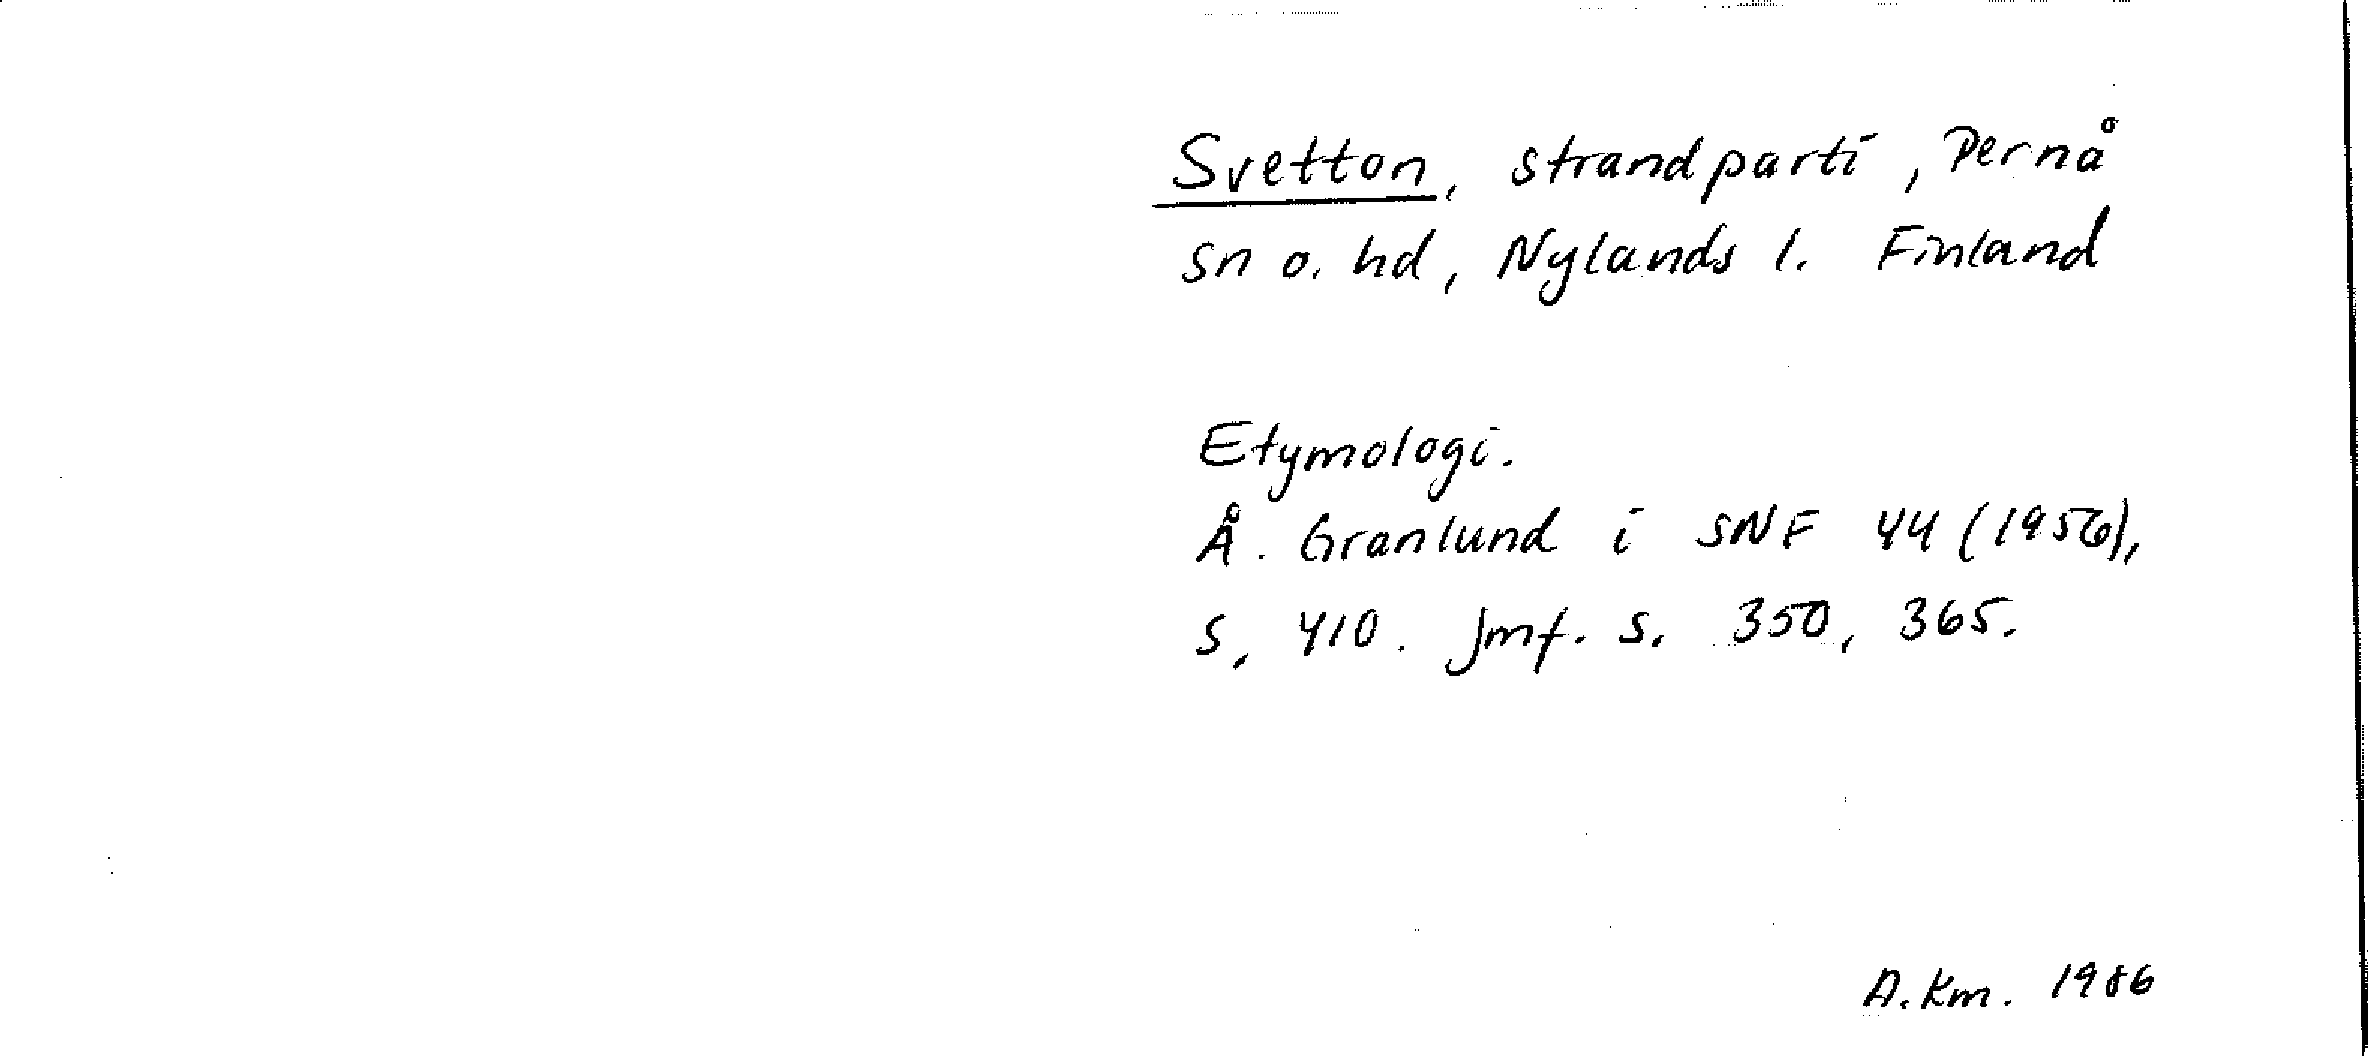 Svetton, strandparti, Pernå
sn o. hd, Nylands l. Finland
Etymologi.
Å. Granlund i SNF 44 (1956),
s. 410. Jmf. s. 350, 365.
A. Km. 1986